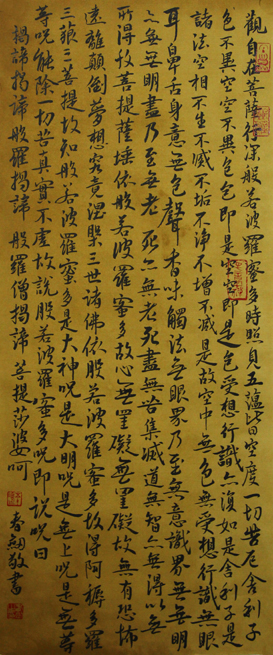 觀自在菩薩行深般若波羅蜜多時照見五蘊皆空度一切苦厄舍利子
色不異空空不異色色即是空空即是色受想行識亦復如是舍利子是
諸法空相不生不滅不垢不淨不增不減是故空中無色無受想行識無眼
耳鼻舌身意無色聲香味觸法無眼界乃至無意識界無無明
亦無無明盡乃至無老死亦無老死盡無苦集滅道無智亦無得以無
所得故菩提薩埵依般若波羅蜜多故心無罣礙無罣礙故無有恐怖
遠離顛倒夢想究竟涅槃三世諸佛依般若波羅蜜多故得阿耨多羅
三藐三菩提故知般若波羅蜜多是大神呪是大明呪是無上呪是無等
等呪能除一切苦真實不虛故說般若波羅蜜多呪即說呪曰
揭諦揭諦般羅揭諦般羅僧揭諦菩提莎婆呵
敬書